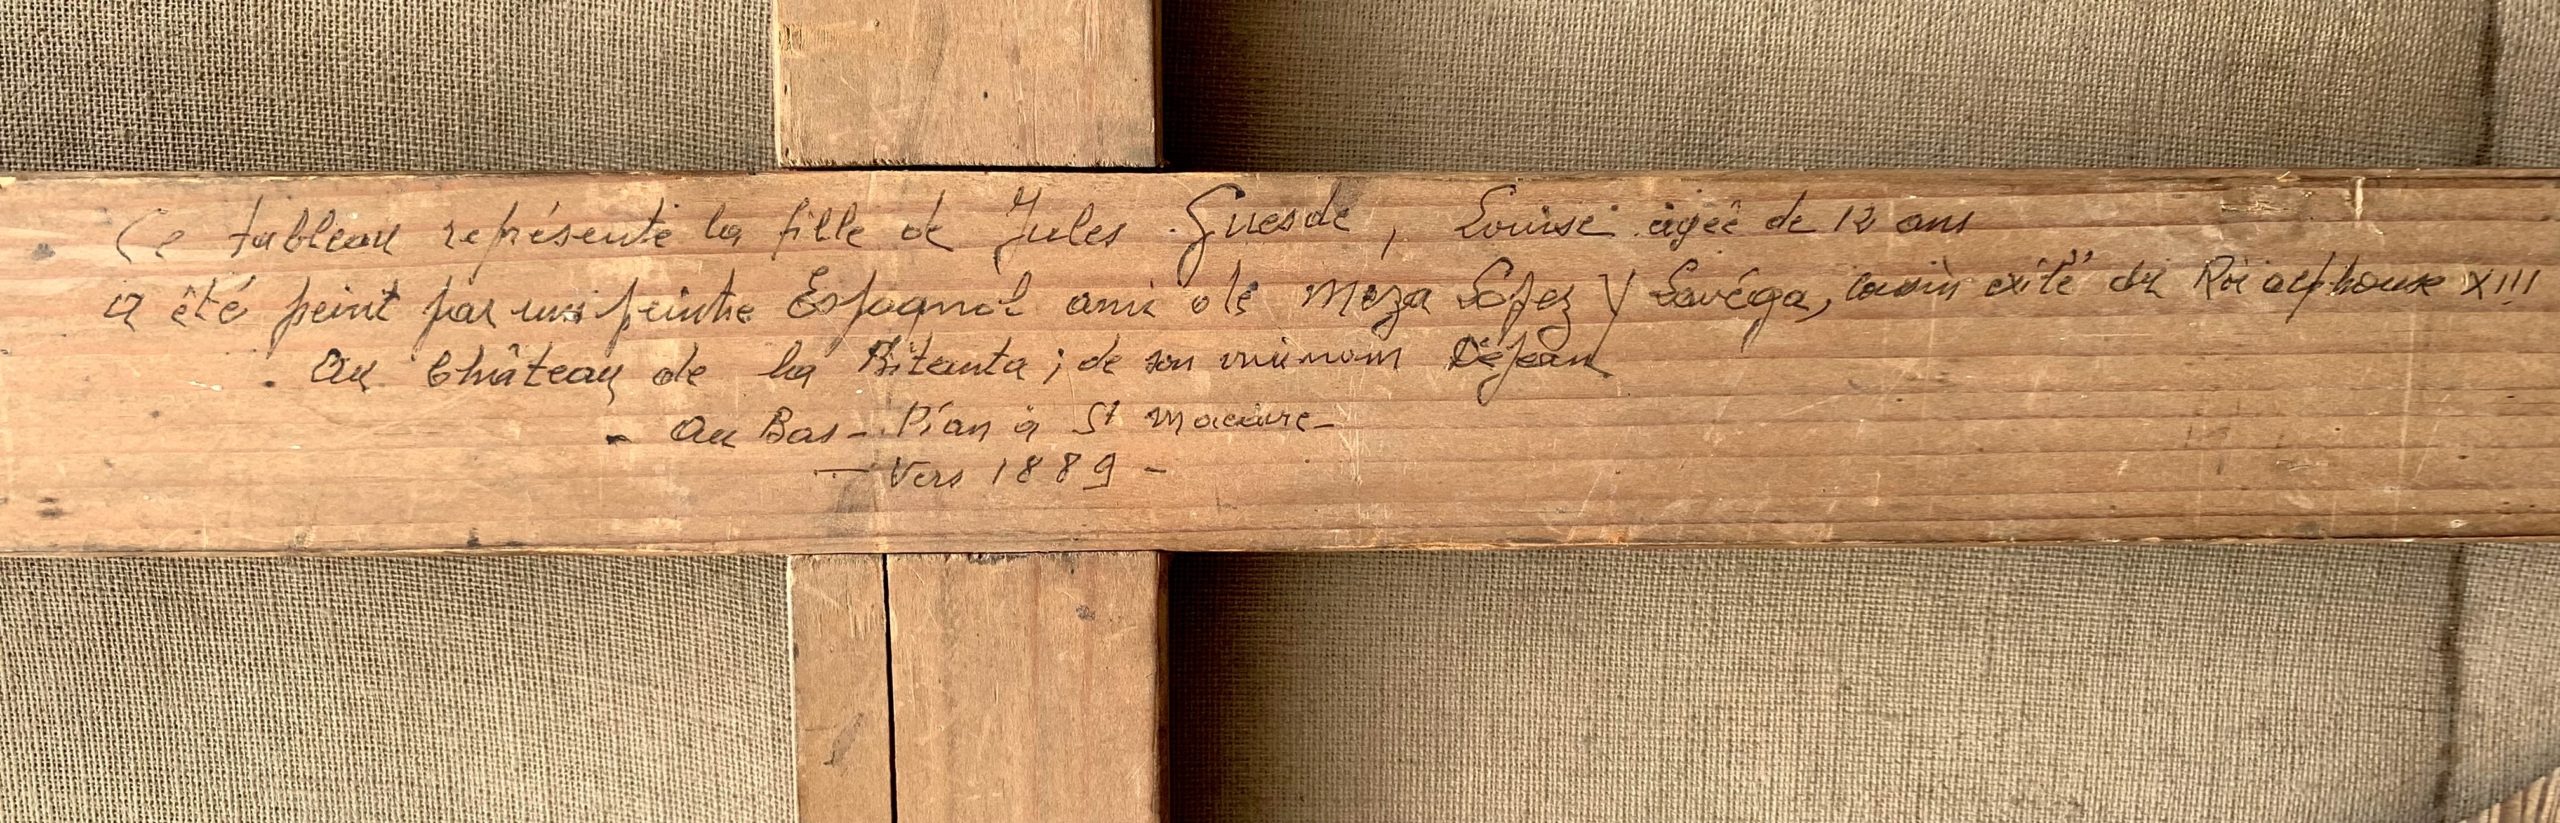 Ce tableau représente la fille de Jules Guesde, Louise agée de 12 ans
a été peint par un peintre Espagnol ami de Meza Lopez y Lavéga, cousin exilé du Roi alphonse XIII
Au Château de la ; de son vrai nom Déjean
- Au Bas-Pian à St Macaire-
- Vers 1889 -